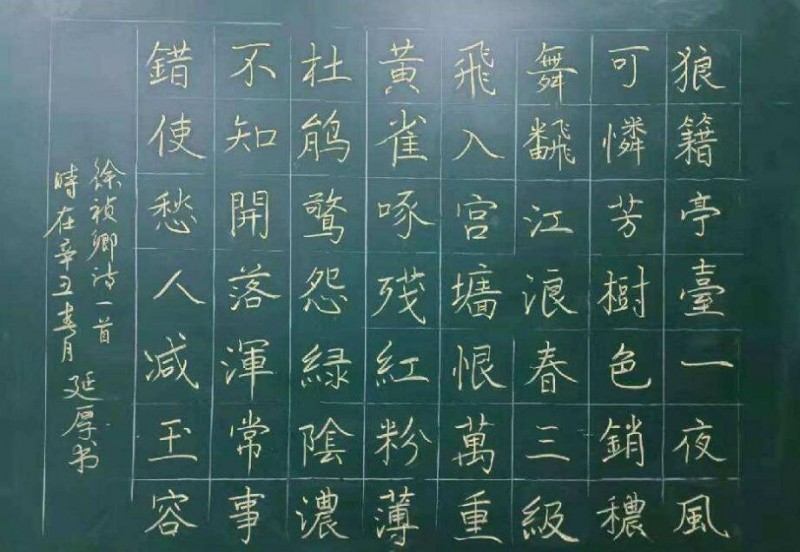 狼籍亭臺一夜風
可憐芳樹色銷穠
舞飜江浪春三級
飛入宫墻恨萬重
黃雀啄殘紅粉薄
杜鵑驚怨緑陰濃
不知開落渾常事
錯使愁人减玉容
徐禎卿詩一首
時在辛丑春月 延厚书